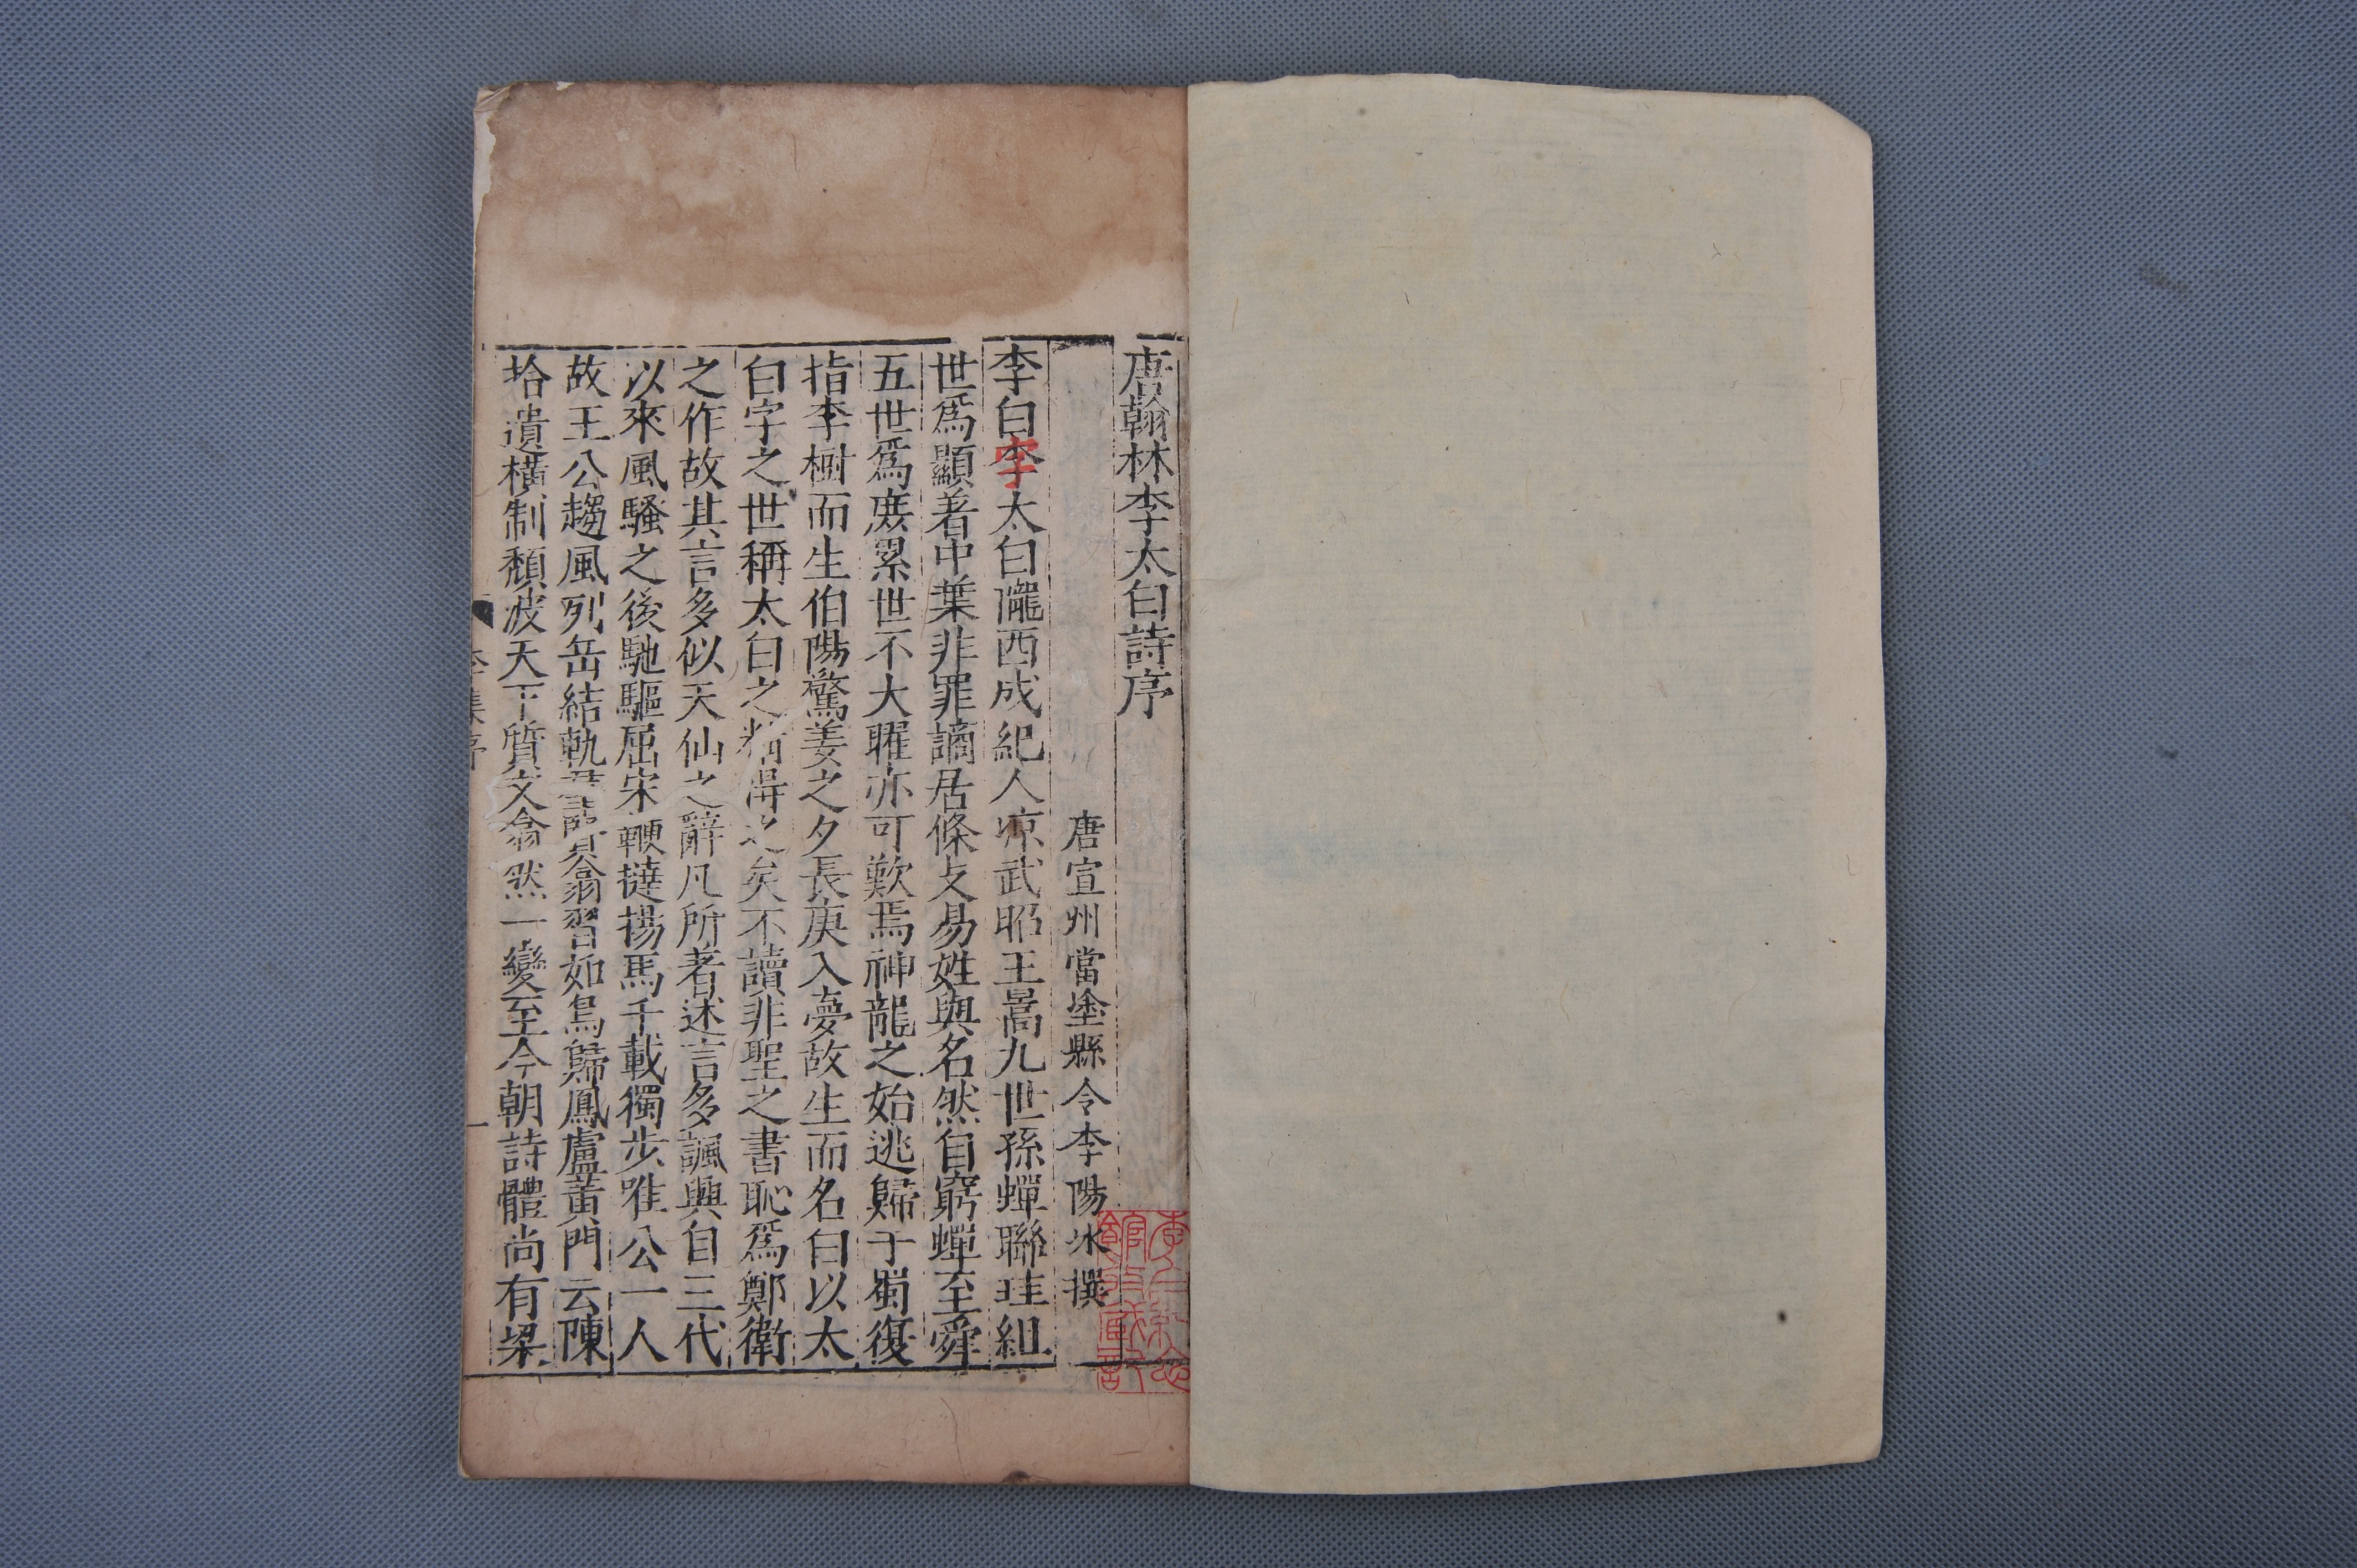 唐翰林李太白詩序
唐宣州當塗縣令李陽氷撰
李白字太白隴西成紀人凉武昭王暠九世孫蟬聯珪組
世爲顯著中葉非罪謫居條攴易姓與名然自窮蟬至舜
五世爲庻累世不大曜亦可歎焉神龍之始逃歸于蜀復
指李樹而生伯陽驚姜之夕長庚入夢故生而名白以太
白字之世稱太白之精得之矣不讀非聖之書恥爲鄭衛
之作故其言多似天仙之辭凡所著述言多諷興自三代
以來風騷之後馳驅屈宋鞭撻揚馬千載獨步唯公一人
故王公趨風列岳結軌羣賢翕習如鳥歸鳳盧黃門云陳
拾遺橫制頹波天下質文翕然一變至今朝詩體尚有梁
李集序 一